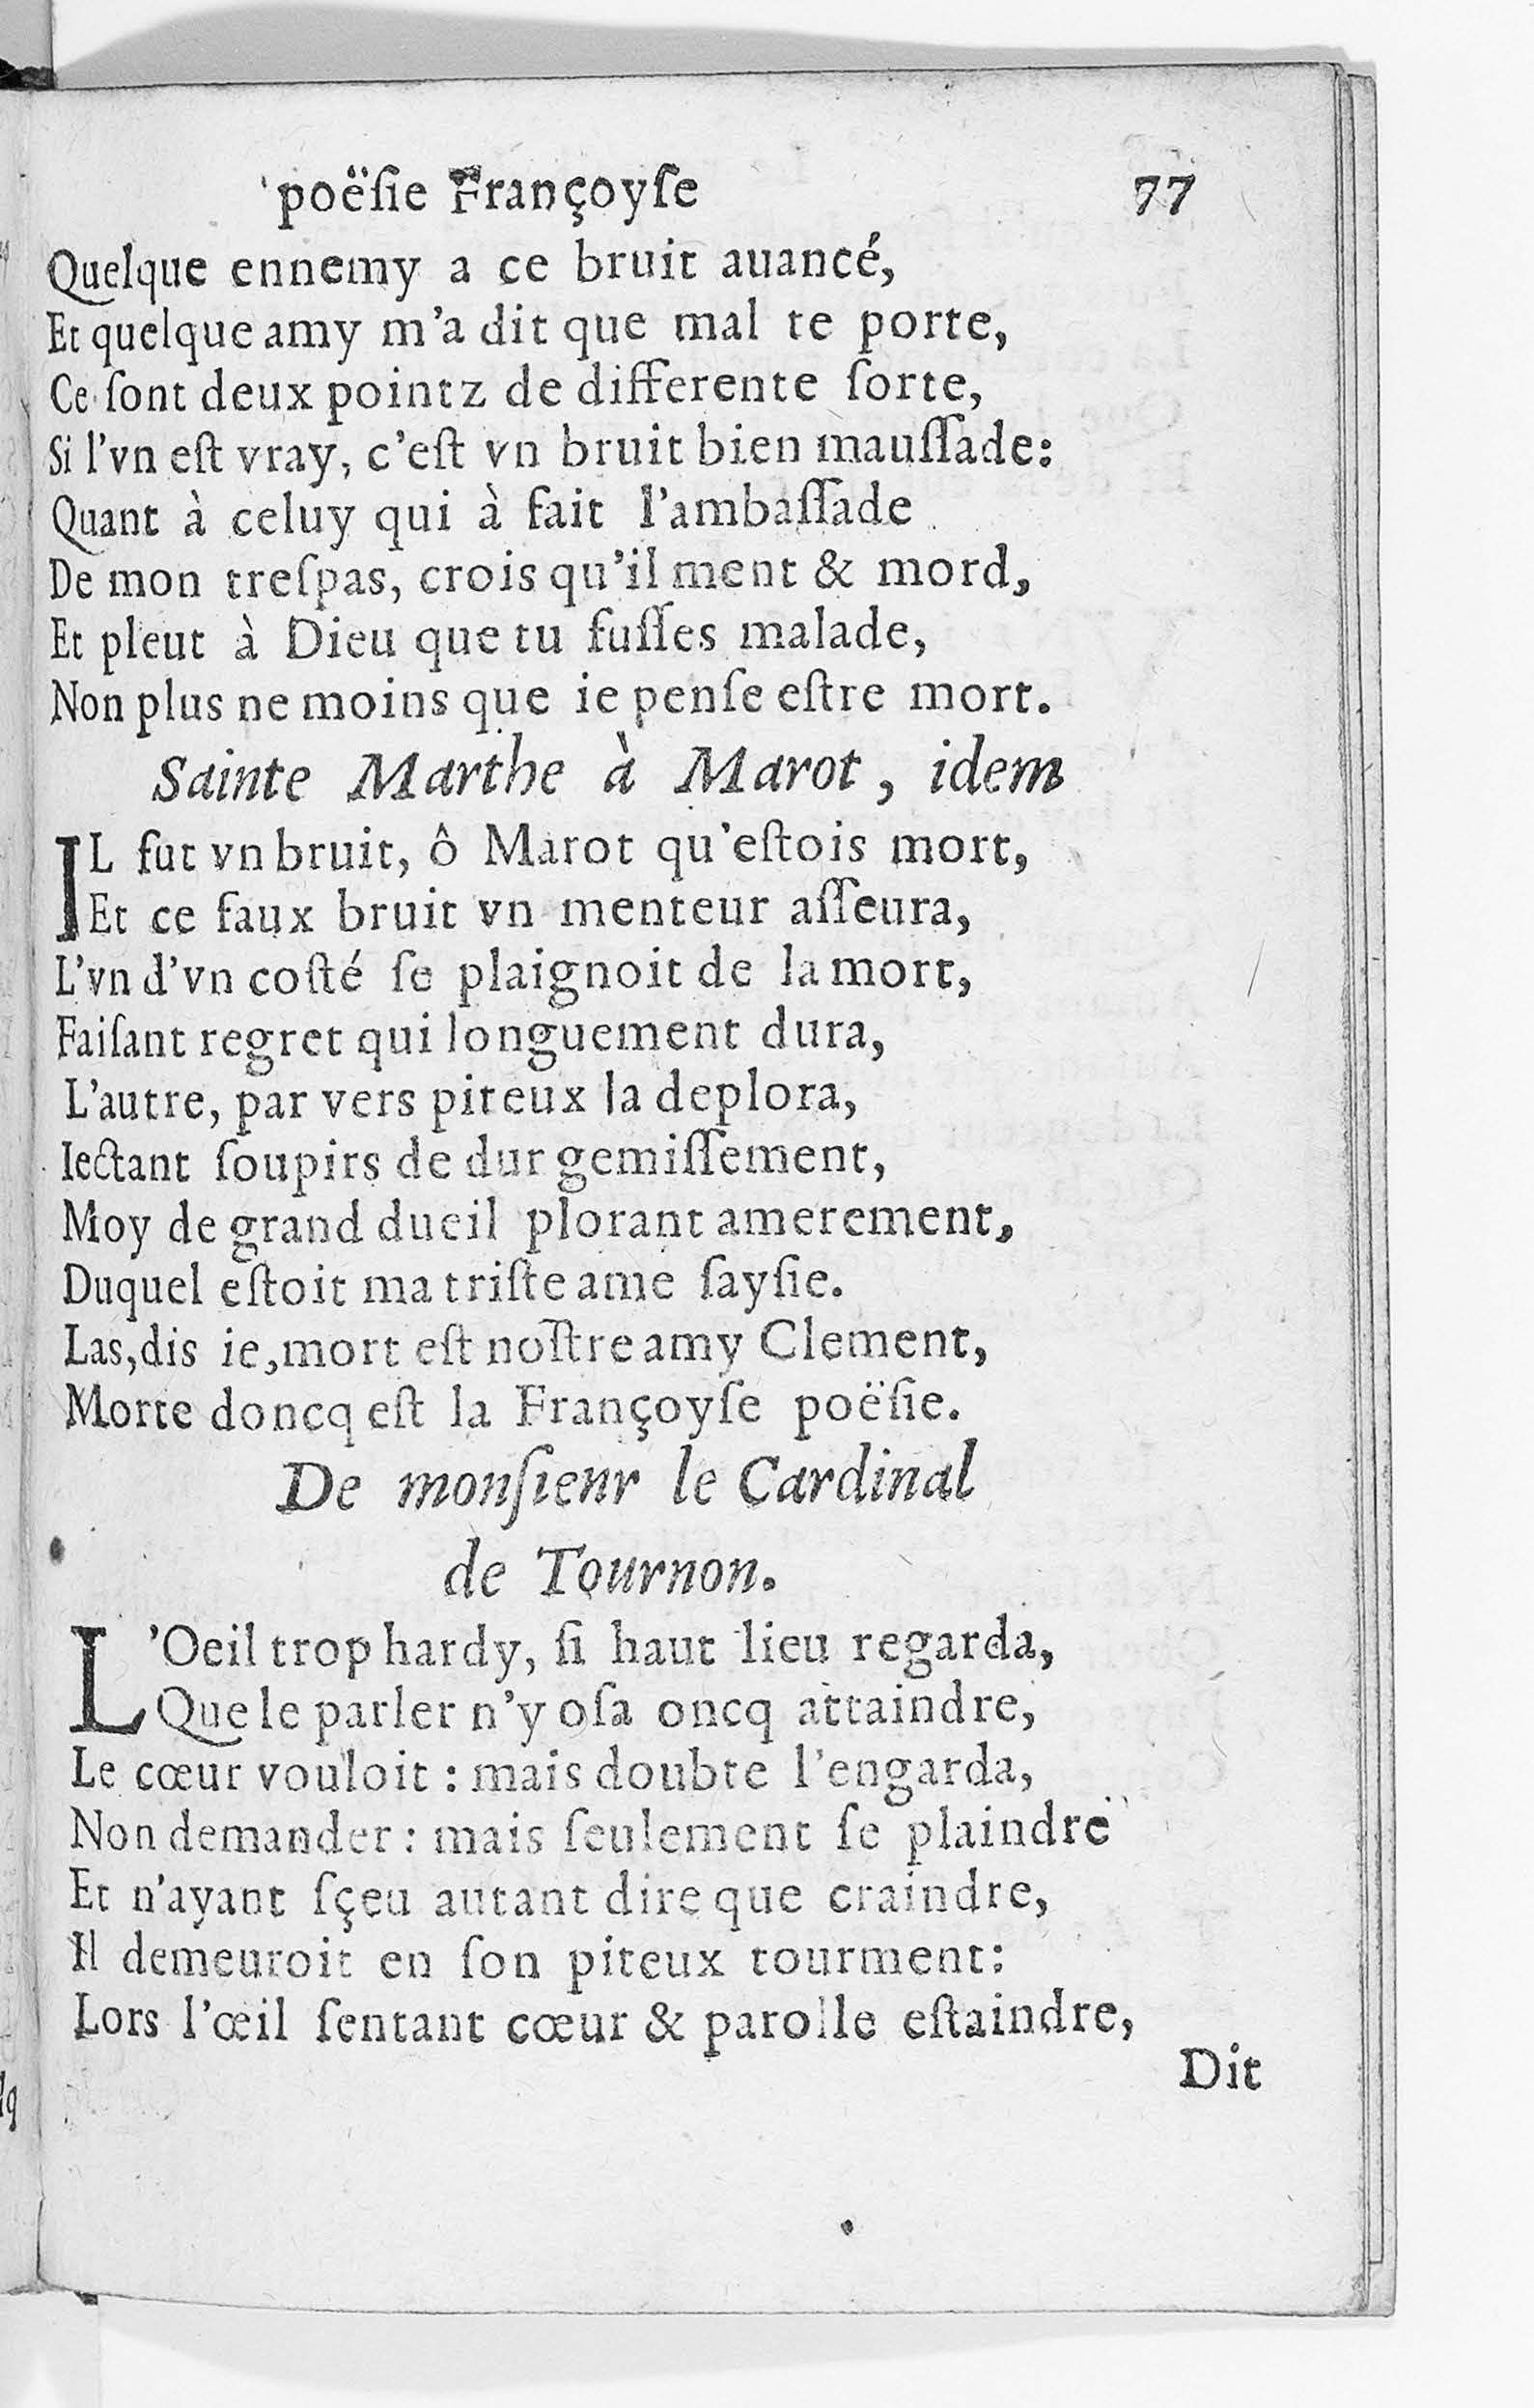 poëſie Françoyſe 77
Quelque ennemy a ce bruit auancé,
Et quelque amy m'a dit que mal te porte,
Ce ſont deux pointz de differente ſorte,
Si l'vn eſt vray, c'eſt vn bruit bien mauſſade:
Quant à celuy qui à fait l'ambaſſade
De mon treſpas, crois qu'il ment & mord,
Et pleut à Dieu que tu fuſſes malade,
Non plus ne moins que ie penſe eſtre mort.
Sainte Marthe à Marot, idem
IL fut vn bruit, ô Marot qu'eſtois mort,
Et ce faux bruit vn menteur aſſeura,
L'vn d'vn coſté ſe plaignoit de la mort,
Faiſant regret qui longuement dura,
L'autre, par vers piteux la deplora,
Iectant ſoupirs de dur gemiſſement,
Moy de grand dueil plorant amerement,
Duquel eſtoit ma triſte ame ſayſie.
Las, dis ie, mort eſt noſtre amy Clement,
Morte doncq eſt la Françoyſe poëſie.
De monſienr le Cardinal
de Tournon.
L'Oeil trop hardy, ſi haut lieu regarda,
Que le parler n'y oſa oncq attaindre,
Le cœur vouloit : mais doubte l'engarda,
Non demander : mais ſeulement ſe plaindre
Et n'ayant ſçeu autant dire que craindre,
Il demeuroit en ſon piteux tourment:
Lors l'œil ſentant cœur & parolle eſtaindre,
Dit